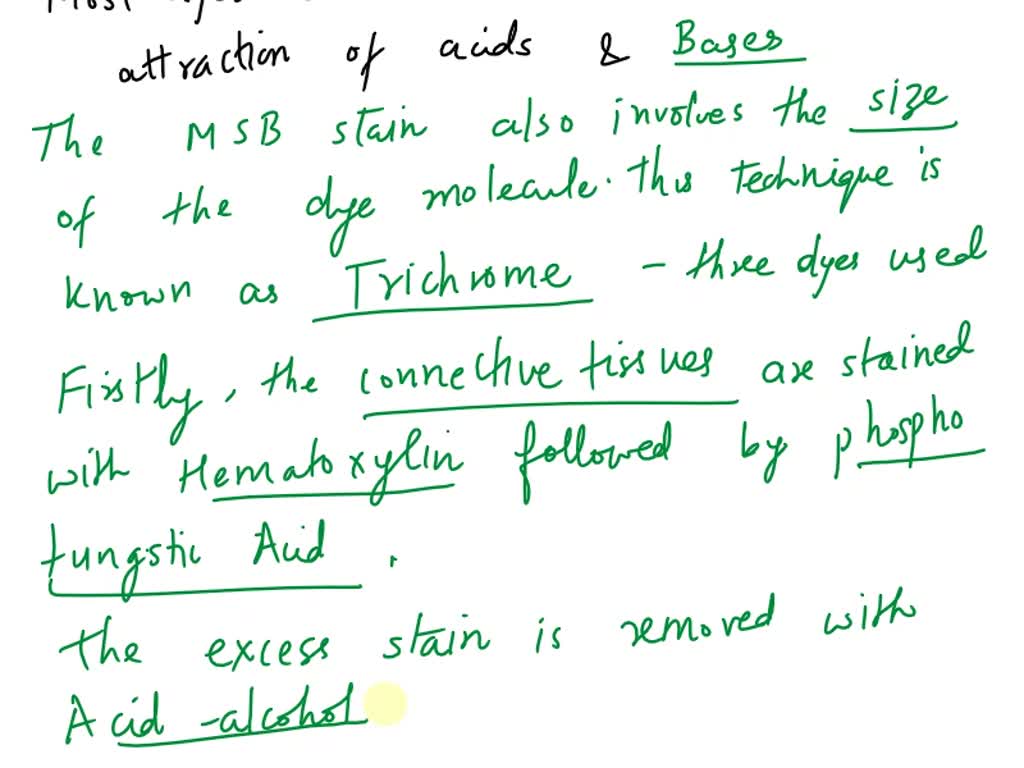 attraction of acids & Bases
The MSB stain also involves the size
of the dye molecule. This technique is
known as Trichrome - three dyes used
Firstly, the connective tissues are stained
with Hematoxylin followed by phospho
tungstic Acid.
The excess stain is removed with
Acid-alcohol